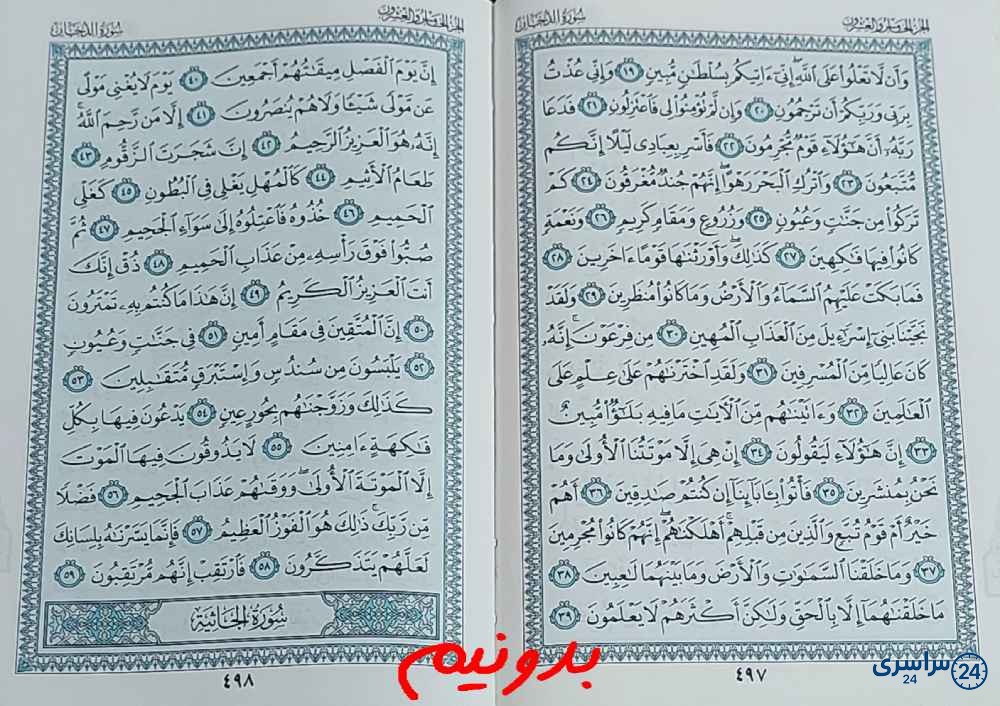 الجزء الخامس والعشرون
سورة الدخان
وَأَن لَّا تَعْلُوا۟ عَلَى ٱللَّهِ ۖ إِنِّىٓ ءَاتِيكُم بِسُلْطَـٰنٍ مُّبِينٍ ١٩ وَإِنِّى عُذْتُ
بِرَبِّى وَرَبِّكُمْ أَن تَرْجُمُونِ ٢٠ وَإِن لَّمْ تُؤْمِنُوا۟ لِى فَٱعْتَزِلُونِ ٢١ فَدَعَا
رَبَّهُۥٓ أَنَّ هَـٰٓؤُلَآءِ قَوْمٌ مُّجْرِمُونَ ٢٢ فَأَسْرِ بِعِبَادِى لَيْلًا إِنَّكُم
مُّتَّبَعُونَ ٢٣ وَٱتْرُكِ ٱلْبَحْرَ رَهْوًا ۖ إِنَّهُمْ جُندٌ مُّغْرَقُونَ ٢٤ كَمْ
تَرَكُوا۟ مِن جَنَّـٰتٍ وَعُيُونٍ ٢٥ وَزُرُوعٍ وَمَقَامٍ كَرِيمٍ ٢٦ وَنَعْمَةٍ
كَانُوا۟ فِيهَا فَـٰكِهِينَ ٢٧ كَذَٰلِكَ ۖ وَأَوْرَثْنَـٰهَا قَوْمًا ءَاخَرِينَ ٢٨
فَمَا بَكَتْ عَلَيْهِمُ ٱلسَّمَآءُ وَٱلْأَرْضُ وَمَا كَانُوا۟ مُنظَرِينَ ٢٩ وَلَقَدْ
نَجَّيْنَا بَنِىٓ إِسْرَٰٓءِيلَ مِنَ ٱلْعَذَابِ ٱلْمُهِينِ ٣٠ مِن فِرْعَوْنَ ۚ إِنَّهُۥ
كَانَ عَالِيًا مِّنَ ٱلْمُسْرِفِينَ ٣١ وَلَقَدِ ٱخْتَرْنَـٰهُمْ عَلَىٰ عِلْمٍ عَلَى
ٱلْعَـٰلَمِينَ ٣٢ وَءَاتَيْنَـٰهُم مِّنَ ٱلْـَٔايَـٰتِ مَا فِيهِ بَلَـٰٓؤٌا۟ مُّبِينٌ
٣٣ إِنَّ هَـٰٓؤُلَآءِ لَيَقُولُونَ ٣٤ إِنْ هِىَ إِلَّا مَوْتَتُنَا ٱلْأُولَىٰ وَمَا
نَحْنُ بِمُنشَرِينَ ٣٥ فَأْتُوا۟ بِـَٔابَآئِنَآ إِن كُنتُمْ صَـٰدِقِينَ ٣٦ أَهُمْ
خَيْرٌ أَمْ قَوْمُ تُبَّعٍ وَٱلَّذِينَ مِن قَبْلِهِمْ ۚ أَهْلَكْنَـٰهُمْ ۖ إِنَّهُمْ كَانُوا۟ مُجْرِمِينَ
٣٧ وَمَا خَلَقْنَا ٱلسَّمَـٰوَٰتِ وَٱلْأَرْضَ وَمَا بَيْنَهُمَا لَـٰعِبِينَ ٣٨
مَا خَلَقْنَـٰهُمَآ إِلَّا بِٱلْحَقِّ وَلَـٰكِنَّ أَكْثَرَهُمْ لَا يَعْلَمُونَ ٣٩
٤٩٧
الجزء الخامس والعشرون
سورة الدخان
إِنَّ يَوْمَ ٱلْفَصْلِ مِيقَـٰتُهُمْ أَجْمَعِينَ ٤٠ يَوْمَ لَا يُغْنِى مَوْلًى
عَن مَّوْلًى شَيْـًٔا وَلَا هُمْ يُنصَرُونَ ٤١ إِلَّا مَن رَّحِمَ ٱللَّهُ ۚ
إِنَّهُۥ هُوَ ٱلْعَزِيزُ ٱلرَّحِيمُ ٤٢ إِنَّ شَجَرَتَ ٱلزَّقُّومِ ٤٣
طَعَامُ ٱلْأَثِيمِ ٤٤ كَٱلْمُهْلِ يَغْلِى فِى ٱلْبُطُونِ ٤٥ كَغَلْىِ
ٱلْحَمِيمِ ٤٦ خُذُوهُ فَٱعْتِلُوهُ إِلَىٰ سَوَآءِ ٱلْجَحِيمِ ٤٧ ثُمَّ
صُبُّوا۟ فَوْقَ رَأْسِهِۦ مِنْ عَذَابِ ٱلْحَمِيمِ ٤٨ ذُقْ إِنَّكَ
أَنتَ ٱلْعَزِيزُ ٱلْكَرِيمُ ٤٩ إِنَّ هَـٰذَا مَا كُنتُم بِهِۦ تَمْتَرُونَ
٥٠ إِنَّ ٱلْمُتَّقِينَ فِى مَقَامٍ أَمِينٍ ٥١ فِى جَنَّـٰتٍ وَعُيُونٍ
٥٢ يَلْبَسُونَ مِن سُندُسٍ وَإِسْتَبْرَقٍ مُّتَقَـٰبِلِينَ ٥٣
كَذَٰلِكَ وَزَوَّجْنَـٰهُم بِحُورٍ عِينٍ ٥٤ يَدْعُونَ فِيهَا بِكُلِّ
فَـٰكِهَةٍ ءَامِنِينَ ٥٥ لَا يَذُوقُونَ فِيهَا ٱلْمَوْتَ
إِلَّا ٱلْمَوْتَةَ ٱلْأُولَىٰ ۖ وَوَقَىٰهُمْ عَذَابَ ٱلْجَحِيمِ ٥٦ فَضْلًا
مِّن رَّبِّكَ ۚ ذَٰلِكَ هُوَ ٱلْفَوْزُ ٱلْعَظِيمُ ٥٧ فَإِنَّمَا يَسَّرْنَـٰهُ بِلِسَانِكَ
لَعَلَّهُمْ يَتَذَكَّرُونَ ٥٨ فَٱرْتَقِبْ إِنَّهُم مُّرْتَقِبُونَ ٥٩
سورة الجاثية
٤٩٨
بدونیم
سراسری
24
24